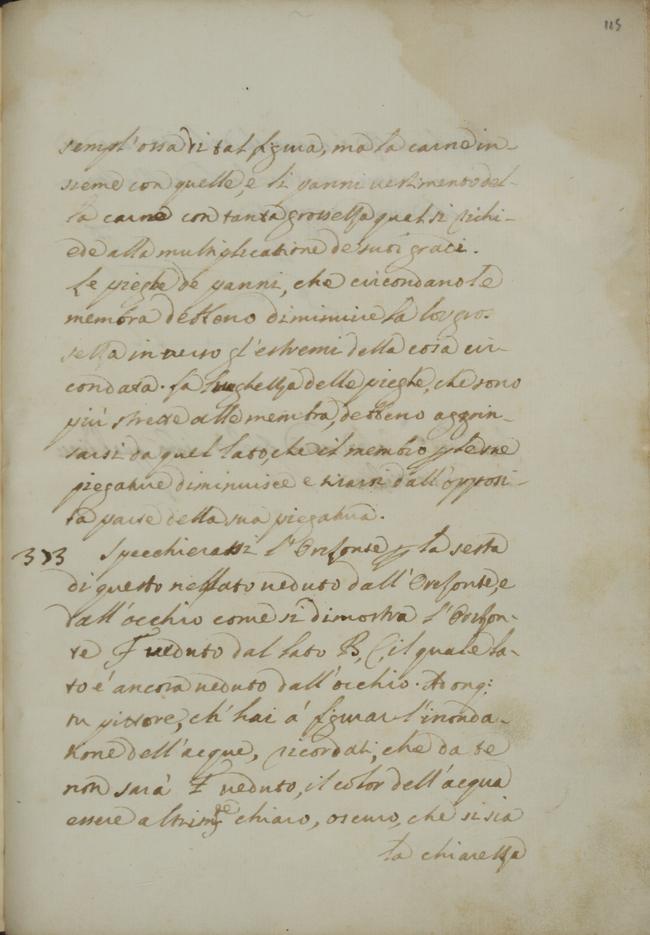 115
sempl' ossa di tal figura, ma la carne in-
sieme con quelle, e li panni vestimento del-
la carne con tanta grossezza qual si richi-
ede alla multiplicatione de suoi gradi.
Le pieghe de panni, che circondano le
membra debbono diminuire la lor gros-
sezza in verso gl' estremi della cosa cir-
condata. La lunghezza delle pieghe, che sono
più strette alle membra, debbono aggrin-
sarsi da quel lato, che il membro per le sue
piegature diminuisce e tirarsi dall' opposi-
ta parte della sua piegatura.
373 Specchierassi l' Orizonte per la sesta
di questo nel lato veduto dall' Orizonte, e
dall' occhio come si dimostra l' Orizon-
te F veduto dal lato B, C, il quale la-
to é ancora veduto dall' occhio. Adonq;
tu pittore, ch' hai á figurar l' inonda-
tione dell' acque, ricordati, che da te
non sarà F veduto, il color dell' acqua
essere altrimte chiaro, oscuro, che si sia
la chiarezza